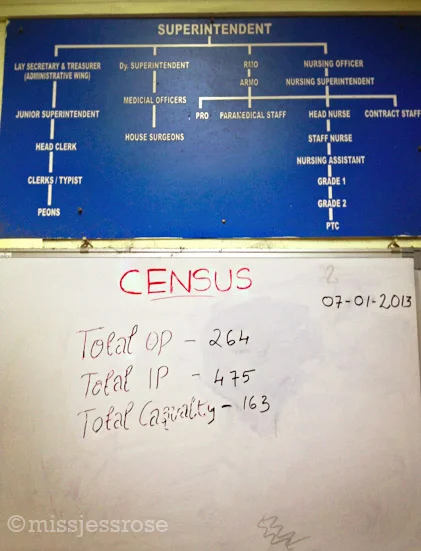 SUPERINTENDENT
LAY SECRETARY & TREASURER
(ADMINISTRATIVE WING)
Dy. SUPERINTENDENT
RMO
NURSING OFFICER
ARMO
NURSING SUPERINTENDENT
MEDICIAL OFFICERS
JUNIOR SUPERINTENDENT
PRO
PARAMEDICAL STAFF
HEAD NURSE
CONTRACT STAFF
HOUSE SURGEONS
STAFF NURSE
HEAD CLERK
NURSING ASSISTANT
CLERKS / TYPIST
GRADE 1
GRADE 2
PEONS
PTC
CENSUS
2
07-01-2013
Total OP - 264
Total IP - 475
Total Casualty - 163
©missjessrose